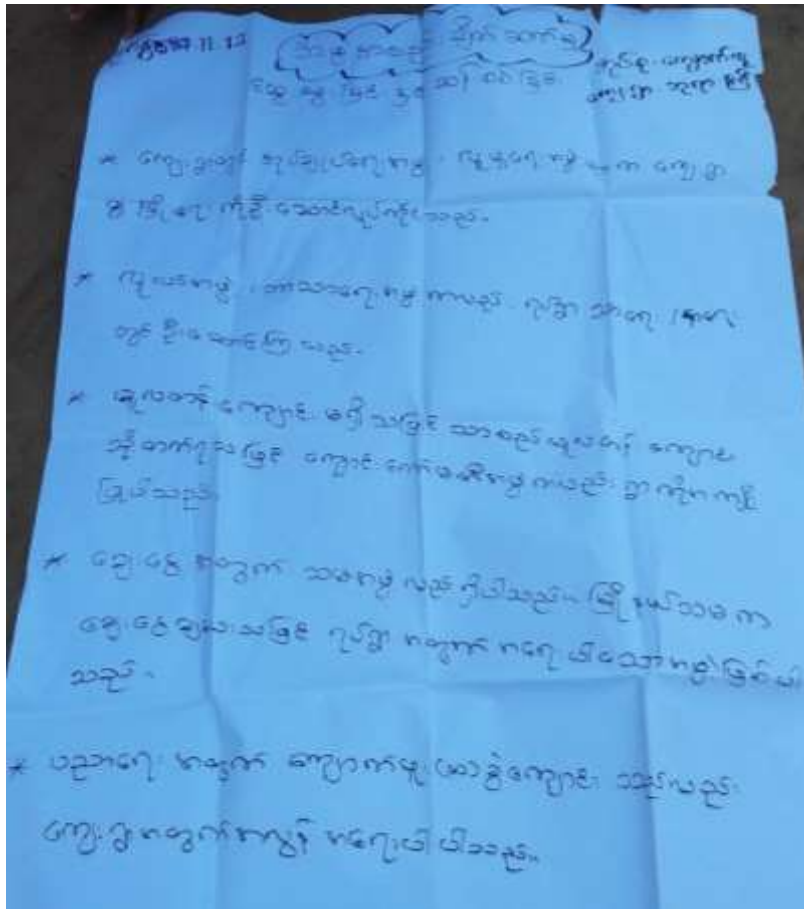 အဖွဲ့အစည်း ချိတ်ဆက်မှု
ဆွေးနွေးခြင်း နှင့် ဆန်းစစ်ခြင်း
အုပ်စု - ကျောက်ဖူး
* ကျေးရွာတွင် အုပ်ချုပ်ရေးအဖွဲ့ ၊ လူမှုရေးအဖွဲ့ များက ကျေးရွာ
ဖွံ့ဖြိုးရေး ကိုဦးဆောင်လုပ်ကိုင်သည်။
* လူငယ်အဖွဲ့ ၊ ဘာသာရေးအဖွဲ့ ကလည်း ရပ်ရွာ သာရေး ၊ နာရေး
တွင် ဦးဆောင်ကြသည်။
* မူလတန်းကျောင်း မရှိသဖြင့် သာစည်မူလတန်း ကျောင်း
သို့ တက်ရသဖြင့် ကျောင်းကော်မတီအဖွဲ့ကလည်း ရွာကိုအကျိုး
ပြုပါသည်။
* ချေးငွေ အတွက် သမအဖွဲ့ လည်း ရှိပါသည်။ မြို့နယ်သမ က
ချေးငွေချေးသဖြင့် ရပ်ရွာ အတွက် အရေးပါသောအဖွဲ့ဖြစ်ပါ
သည်။
* ပညာရေး အတွက် ကျောက်ဖူး (ဆာ)ခွဲကျောင်း သည်လည်း
ကျေးရွာအတွက်အလွန် အရေးပါ ပါသည်။